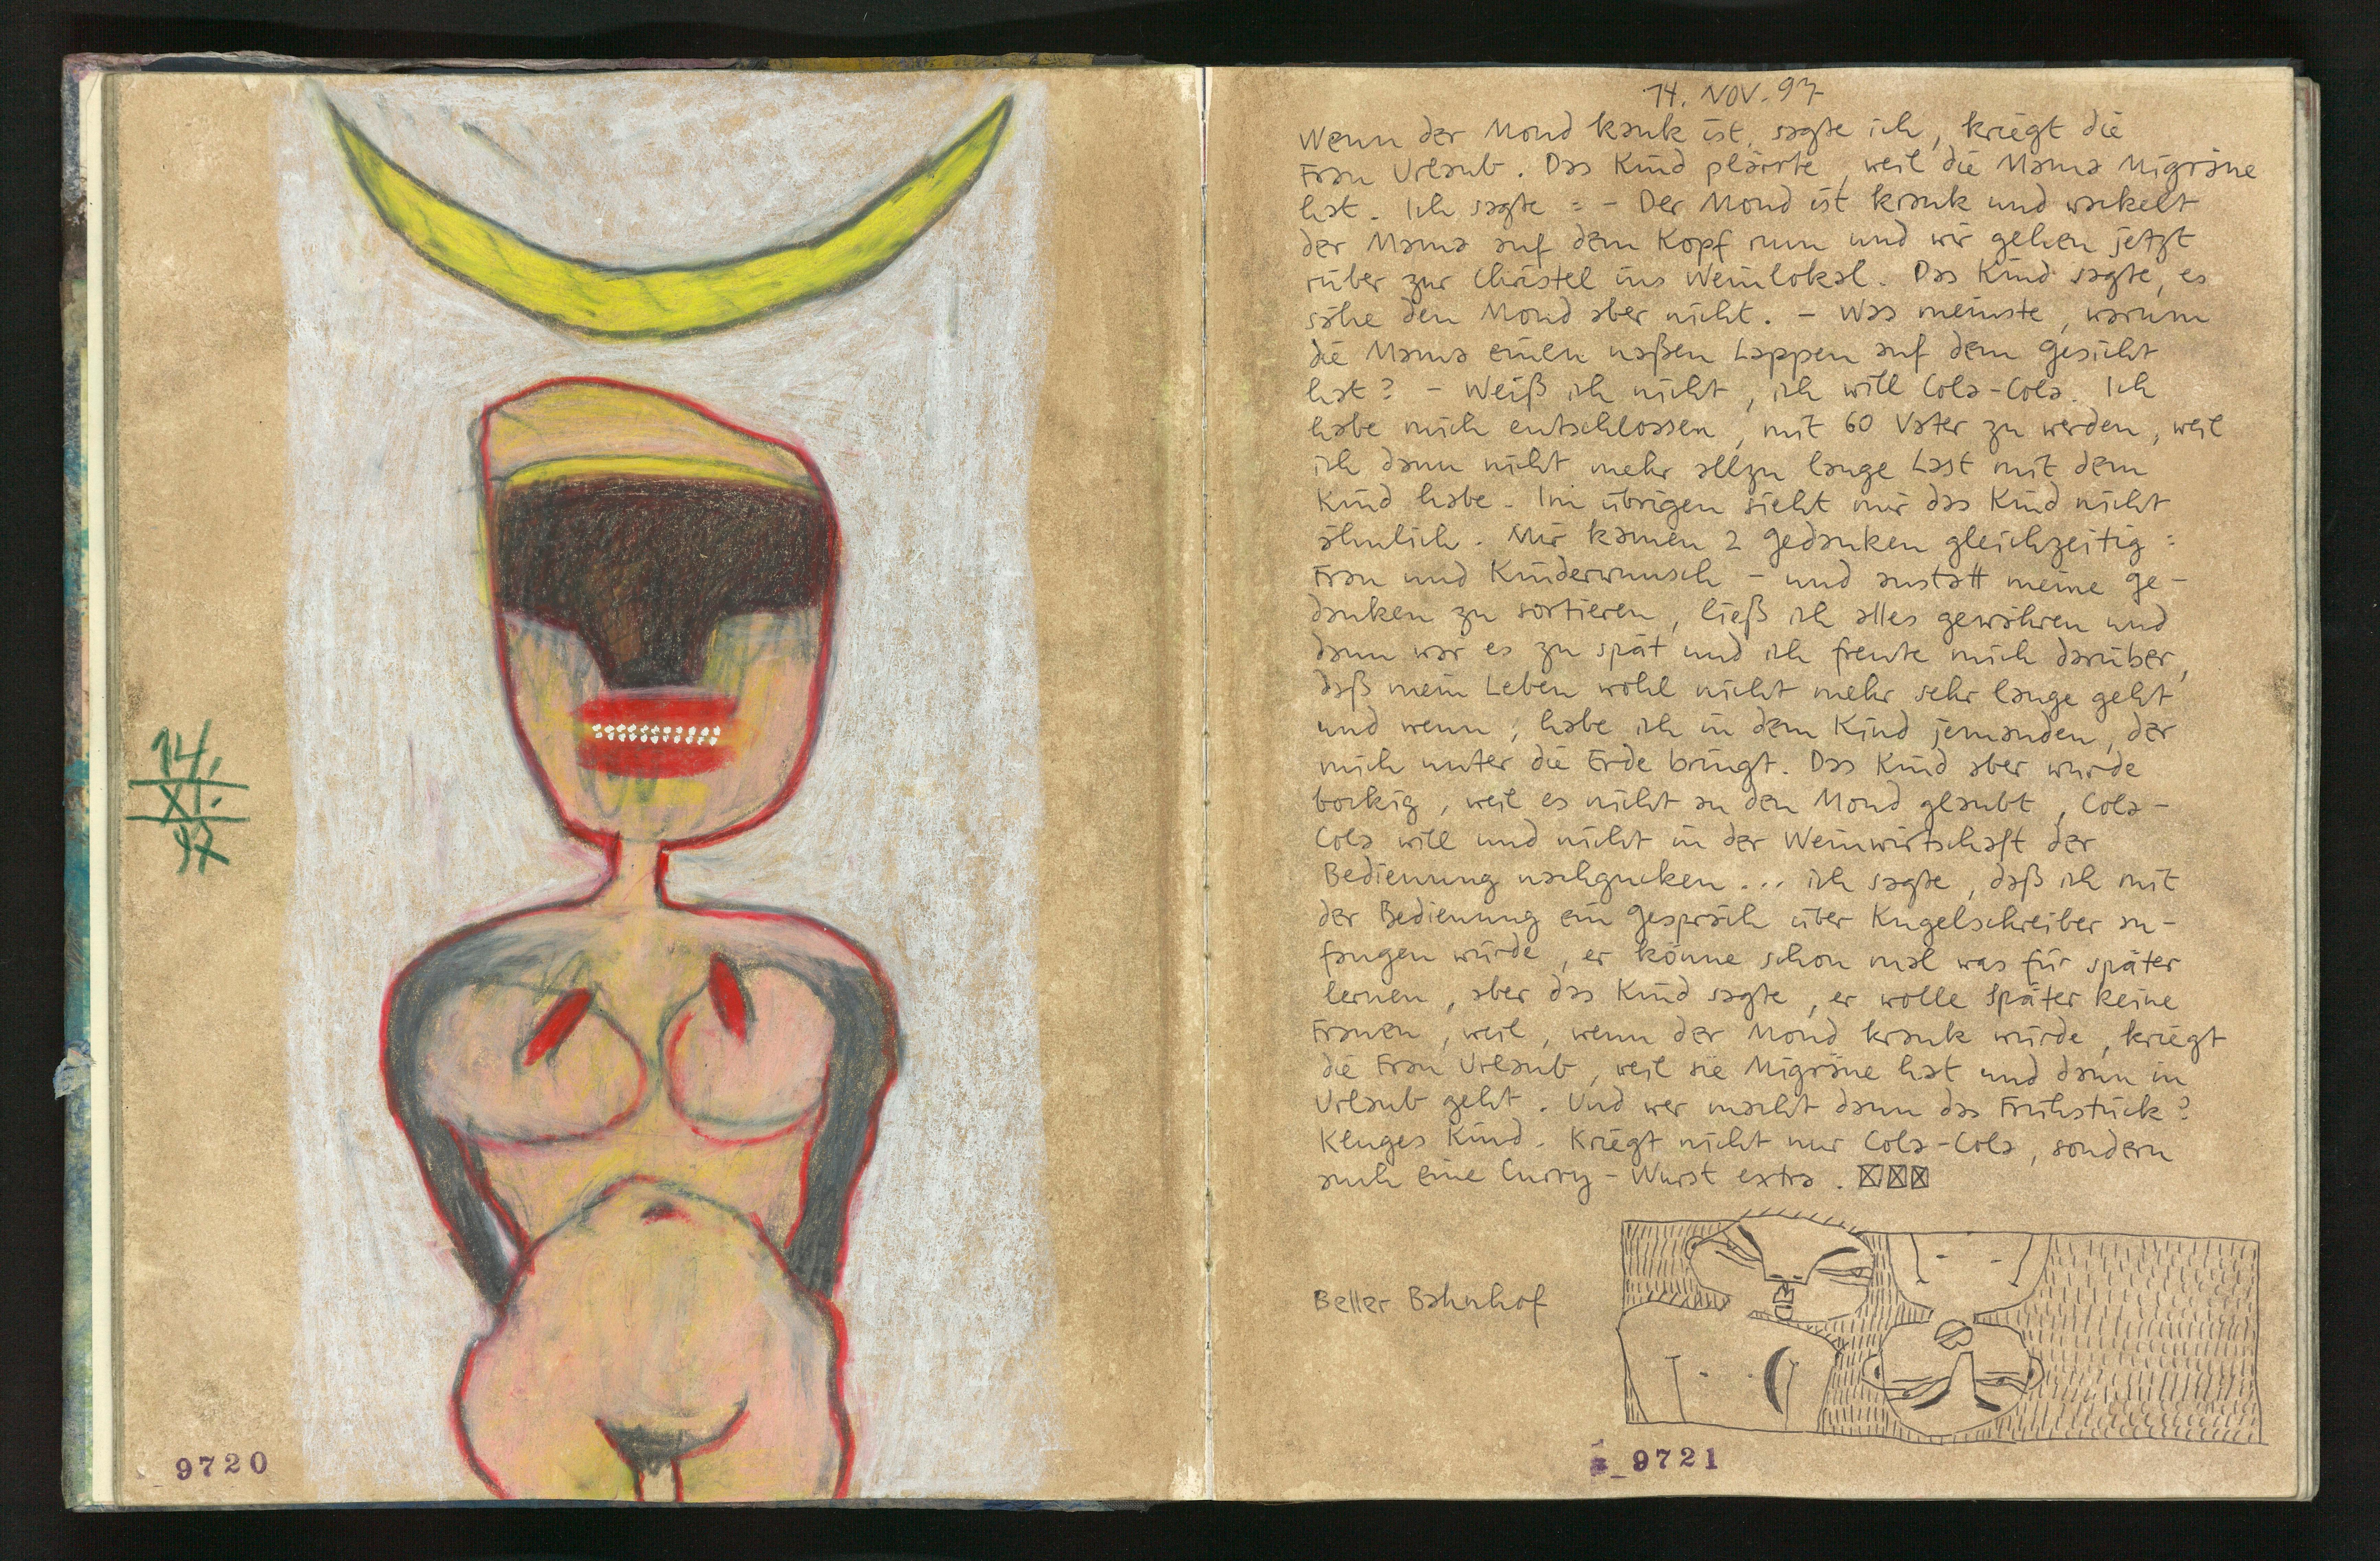 14.
XI.
97
9720
14. NOV. 97
Wenn der Mond kank ist, sagte ich, kriegt die
Frau Urlaub. Das Kind plärrte, weil die Mama Migräne
hat. Ich sagte = - Der Mond ist krank und wackelt
der Mama auf dem Kopf rum und wir gehen jetzt
rüber zur Christel ins Weinlokal. Das Kind sagte, es
sähe den Mond aber nicht. - Was meinste, warum
die Mama einen naßen Lappen auf dem Gesicht
hat? - Weiß ich nicht, ich will Cola-Cola. Ich
habe mich entschlossen, mit 60 Vater zu werden, weil
ich dann nicht mehr allzu lange Last mit dem
Kind habe. Im übrigen sieht mir das Kind nicht
ähnlich. Mir kamen 2 Gedanken gleichzeitig =
Frau und Kinderwunsch - und anstatt meine Ge-
danken zu sortieren, ließ ich alles gewähren und
dann war es zu spät und ich freute mich darüber,
daß mein Leben wohl nicht mehr sehr lange geht
und wenn, habe ich in dem Kind jemanden, der
mich unter die Erde bringt. Das Kind aber wurde
bockig, weil es nicht an den Mond glaubt, Cola-
Cola will und nicht in der Weinwirtschaft der
Bedienung nachgucken... ich sagte, daß ich mit
der Bedienung ein Gespräch über Kugelschreiber an-
fangen würde, er könne schon mal was für später
lernen, aber das Kind sagte, er wolle später keine
Frauen, weil, wenn der Mond krank würde, kriegt
die Frau Urlaub, weil sie Migräne hat und dann in
Urlaub geht. Und wer macht dann das Frühstück?
Kluges Kind. Kriegt nicht nur Cola-Cola, sondern
auch eine Curry-Wurst extra.
Beller Bahnhof
9721